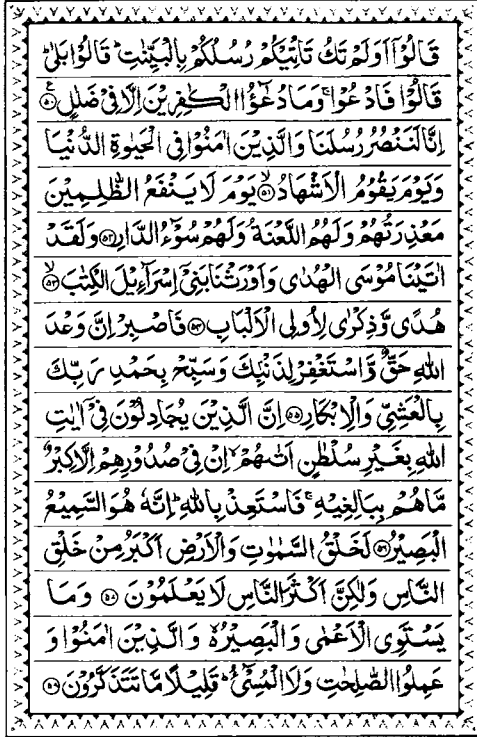 قَالُوْۤا اَوَلَمْ تَكُ تَاْتِیْكُمْ رُسُلُكُمْ بِالْبَیِّنٰتِ ؕ قَالُوْا بَلٰی ؕ
قَالُوْا فَادْعُوْا ۚ وَمَا دُعٰٓؤُا الْكٰفِرِیْنَ اِلَّا فِیْ ضَلٰلٍ ۟۵۰
اِنَّا لَنَنْصُرُ رُسُلَنَا وَالَّذِیْنَ اٰمَنُوْا فِی الْحَیٰوةِ الدُّنْیَا
وَیَوْمَ یَقُوْمُ الْاَشْهَادُ ۟ۙ۵۱ یَوْمَ لَا یَنْفَعُ الظّٰلِمِیْنَ
مَعْذِرَتُهُمْ وَلَهُمُ اللَّعْنَةُ وَلَهُمْ سُوْٓءُ الدَّارِ ۟۵۲ وَلَقَدْ
اٰتَیْنَا مُوْسَی الْهُدٰی وَاَوْرَثْنَا بَنِیْۤ اِسْرَآءِیْلَ الْكِتٰبَ ۟ۙ۵۳
هُدًی وَّذِكْرٰی لِاُولِی الْاَلْبَابِ ۟۵۴ فَاصْبِرْ اِنَّ وَعْدَ
اللّٰهِ حَقٌّ وَّاسْتَغْفِرْ لِذَنْۢبِكَ وَسَبِّحْ بِحَمْدِ رَبِّكَ
بِالْعَشِیِّ وَالْاِبْكَارِ ۟۵۵ اِنَّ الَّذِیْنَ یُجَادِلُوْنَ فِیْۤ اٰیٰتِ
اللّٰهِ بِغَیْرِ سُلْطٰنٍ اَتٰىهُمْ ۙ اِنْ فِیْ صُدُوْرِهِمْ اِلَّا كِبْرٌ
مَّا هُمْ بِبَالِغِیْهِ ۚ فَاسْتَعِذْ بِاللّٰهِ ؕ اِنَّهٗ هُوَ السَّمِیْعُ
الْبَصِیْرُ ۟۵۶ لَخَلْقُ السَّمٰوٰتِ وَالْاَرْضِ اَكْبَرُ مِنْ خَلْقِ
النَّاسِ وَلٰكِنَّ اَكْثَرَ النَّاسِ لَا یَعْلَمُوْنَ ۟۵۷ وَمَا
یَسْتَوِی الْاَعْمٰی وَالْبَصِیْرُ ۙ۬ وَالَّذِیْنَ اٰمَنُوْا وَ
عَمِلُوا الصّٰلِحٰتِ وَلَا الْمُسِیْٓءُ ؕ قَلِیْلًا مَّا تَتَذَكَّرُوْنَ ۟۵۸